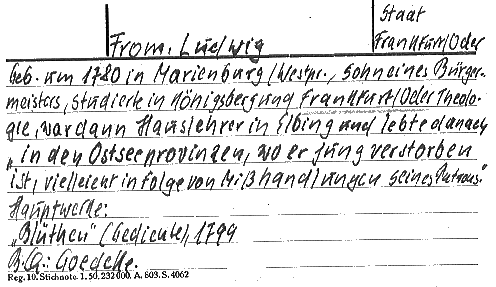 Staat
From. Ludwig Frankfurt/Oder
geb. um 1780 in Marienburg/Westpr., Sohn eines Bürger-
meisters, studierte in Königsberg und Frankfurt/Oder Theolo-
gie, war dann Hauslehrer in Elbing und lebte danach
„in den Ostseeprovinzen, wo er jung verstorben
ist, vielleicht infolge von Mißhandlungen seines Patrons."
Hauptwerke:
„Blüthen" (Gedichte), 1799
B.Q.: Goedeke.
Reg. 10. Stichnote. 1. 50. 232 000. A. 803. S. 4062